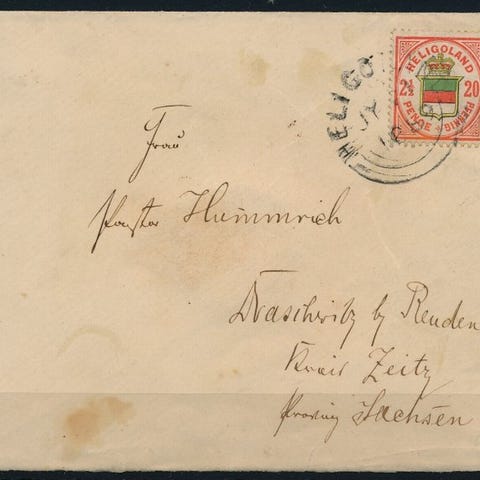 HELIGOLAND
2½ 20
PENCE PFENNIG
HELIGO
JY
Frau
Pastor Hummrich
Draschwitz by Reuden
Kreis Zeitz
Provinz Sachsen